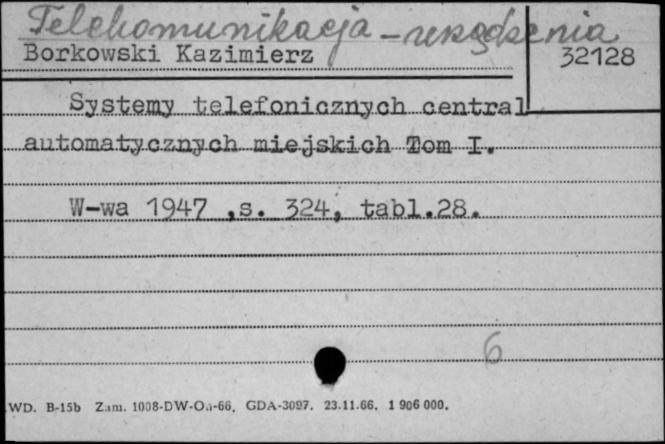 Telekomunikacja - urządzenia
Borkowski Kazimierz
32128
Systemy telefonicznych central
automatycznych miejskich Tom I.
W-wa 1947 ,s. 324, tabl.28.
6
WD. B-15b Zam. 1008-DW-On-66, GDA-3097. 23.11.66. 1 906 000.